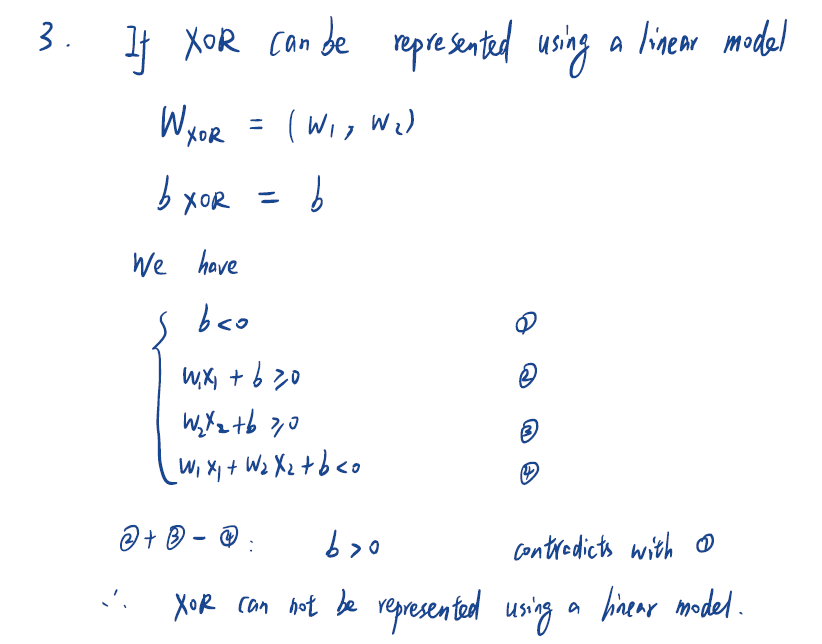 3. If XOR can be represented using a linear model
W_XOR = (w₁, w₂)
b_XOR = b
We have
{ b<0 ①
w₁x₁ + b ⩾0 ②
w₂x₂+b ⩾0 ③
w₁x₁+w₂x₂+b<0 ④
②+③-④: b>0 contradicts with ①
∴ XOR can not be represented using a linear model.